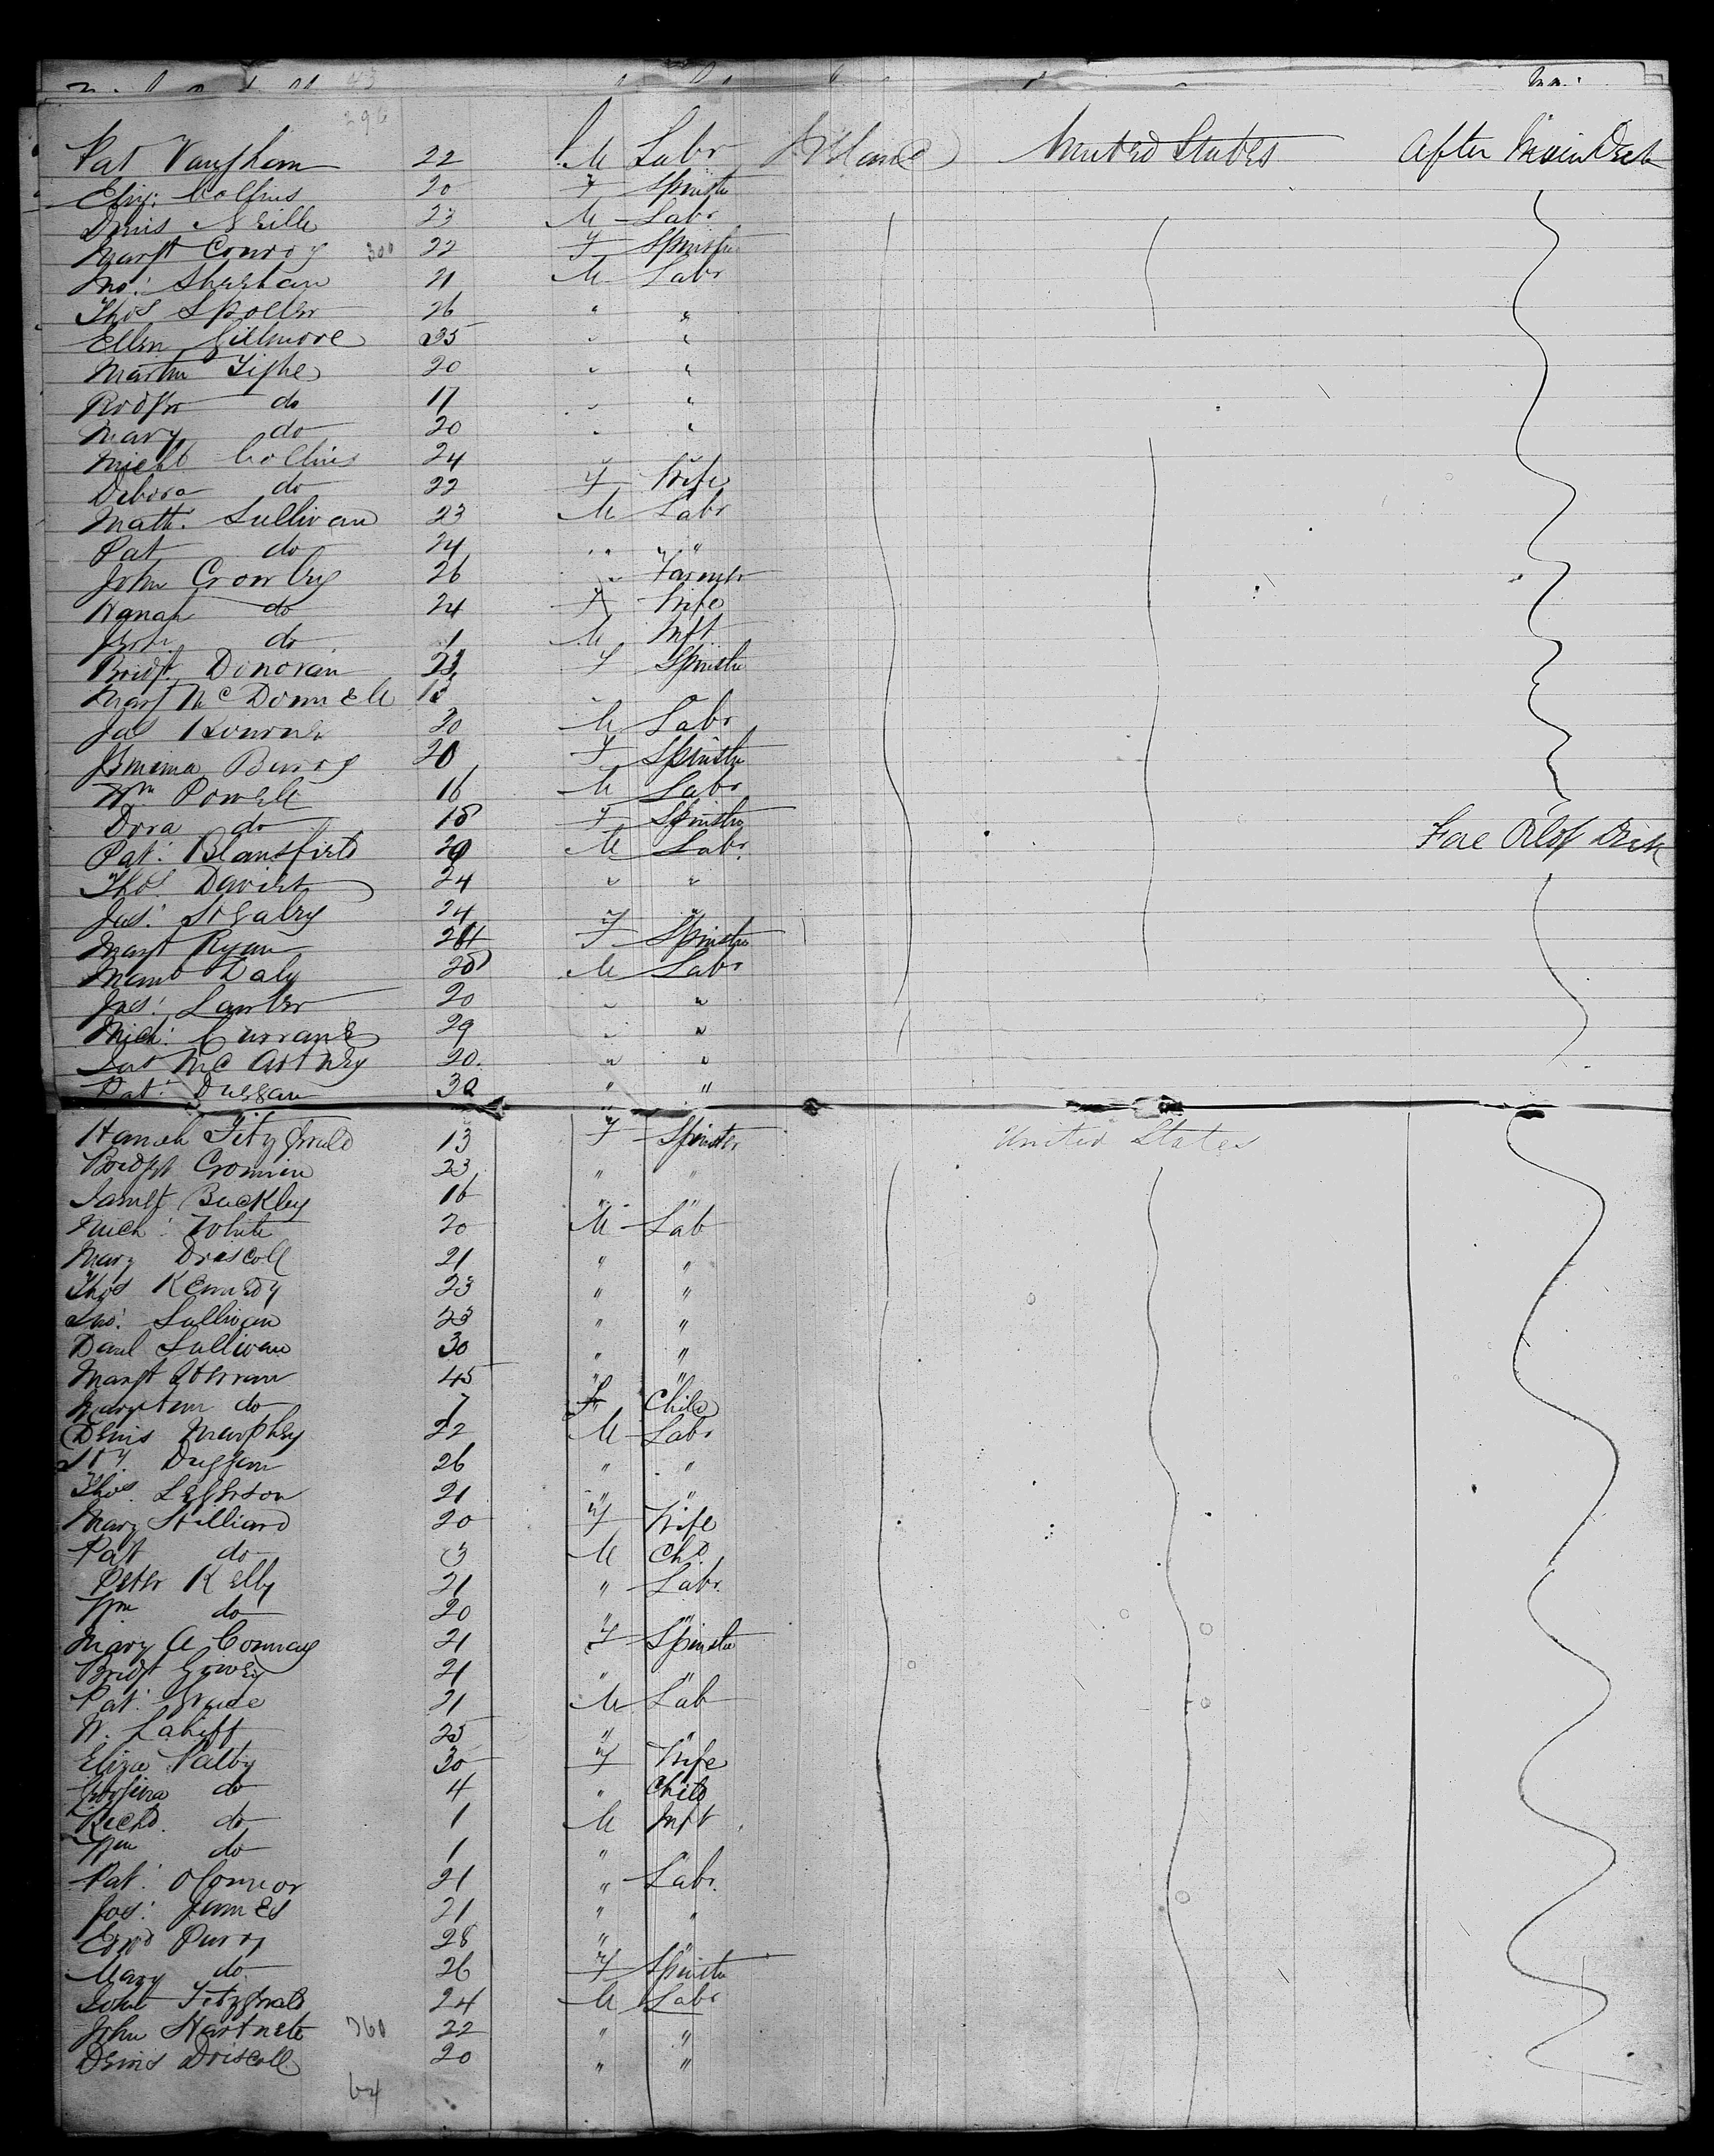 296
Pat Vaughan 22 M Labr Ireland United States After Main Deck
Eliz: Collins 20 F Spinstr
Denis Neille 23 M Labr
Margt Conroy 300 22 F Spinstr
Jno: Sheehan 21 M Labr
Thos Spoller 26 " "
Ellen Gillmore 25 " "
Martin Tighe 20 " "
Rodgr do 17 " "
Mary do 20 " "
Michl Collins 24 " "
Debora do 22 F Wife
Matt: Sullivan 23 M Labr
Pat do 24 " "
John Crowley 26 " Farmer
Hanah do 24 F Wife
John do 1 M Inft
Bridgt Donovan 23 F Spinstr
Margt McDonnell
Jas 20 M Labr
Jemima Barry 20 F Spinstr
Wm Powell 16 M Labr
Dora do 18 F Spinstr
Pat: Blansfield 20 M Labr Fore Orlop Deck
Thos Davies 24 " "
Jas: Stealey 24 " "
Margt Ryan 24 F Spinstr
Maur Daly 28 M Labr
Jas: Lawler 20 " "
Mich: Currane 29 " "
McArthey 20 " "
Pat: Duggan 30 " "
Hanah Fitzgerald 13 F Spinster United States
Bridgt Cronnin 23 " "
Buckley 16 " "
Mich: White 20 M Lab
Mary Driscoll 21 " "
Thos Kennedy 23 " "
Jno: Sullivan 23 " "
Danl Sullivan 30 " "
Margt 45 " "
do 7 F Child
Denis Murphey 22 M Labr
Duggan 26 " "
Thos. 21 " "
Mary Stilliard 20 F Wife
Pat do 3 M Chd
Peter Kelly 21 " Labr
Wm do 20 " "
Mary A Conway 21 F Spinstr
Bridgt 21 " "
Pat: Grace 21 M Lab
N. Lahiff 25 " "
Eliza Patby 30 F Wife
Georgina do 4 " Child
Richd. do 1 M Inft
Wm do 1 " "
Pat: OConnor 21 " Labr.
Jos: James 21 " "
Edwd Purry 28 " "
Mary do 26 F Spinstr
John Fitzgerald 24 M Labr
John Hartnett 360 22 " "
Denis Driscoll 20 " "
64